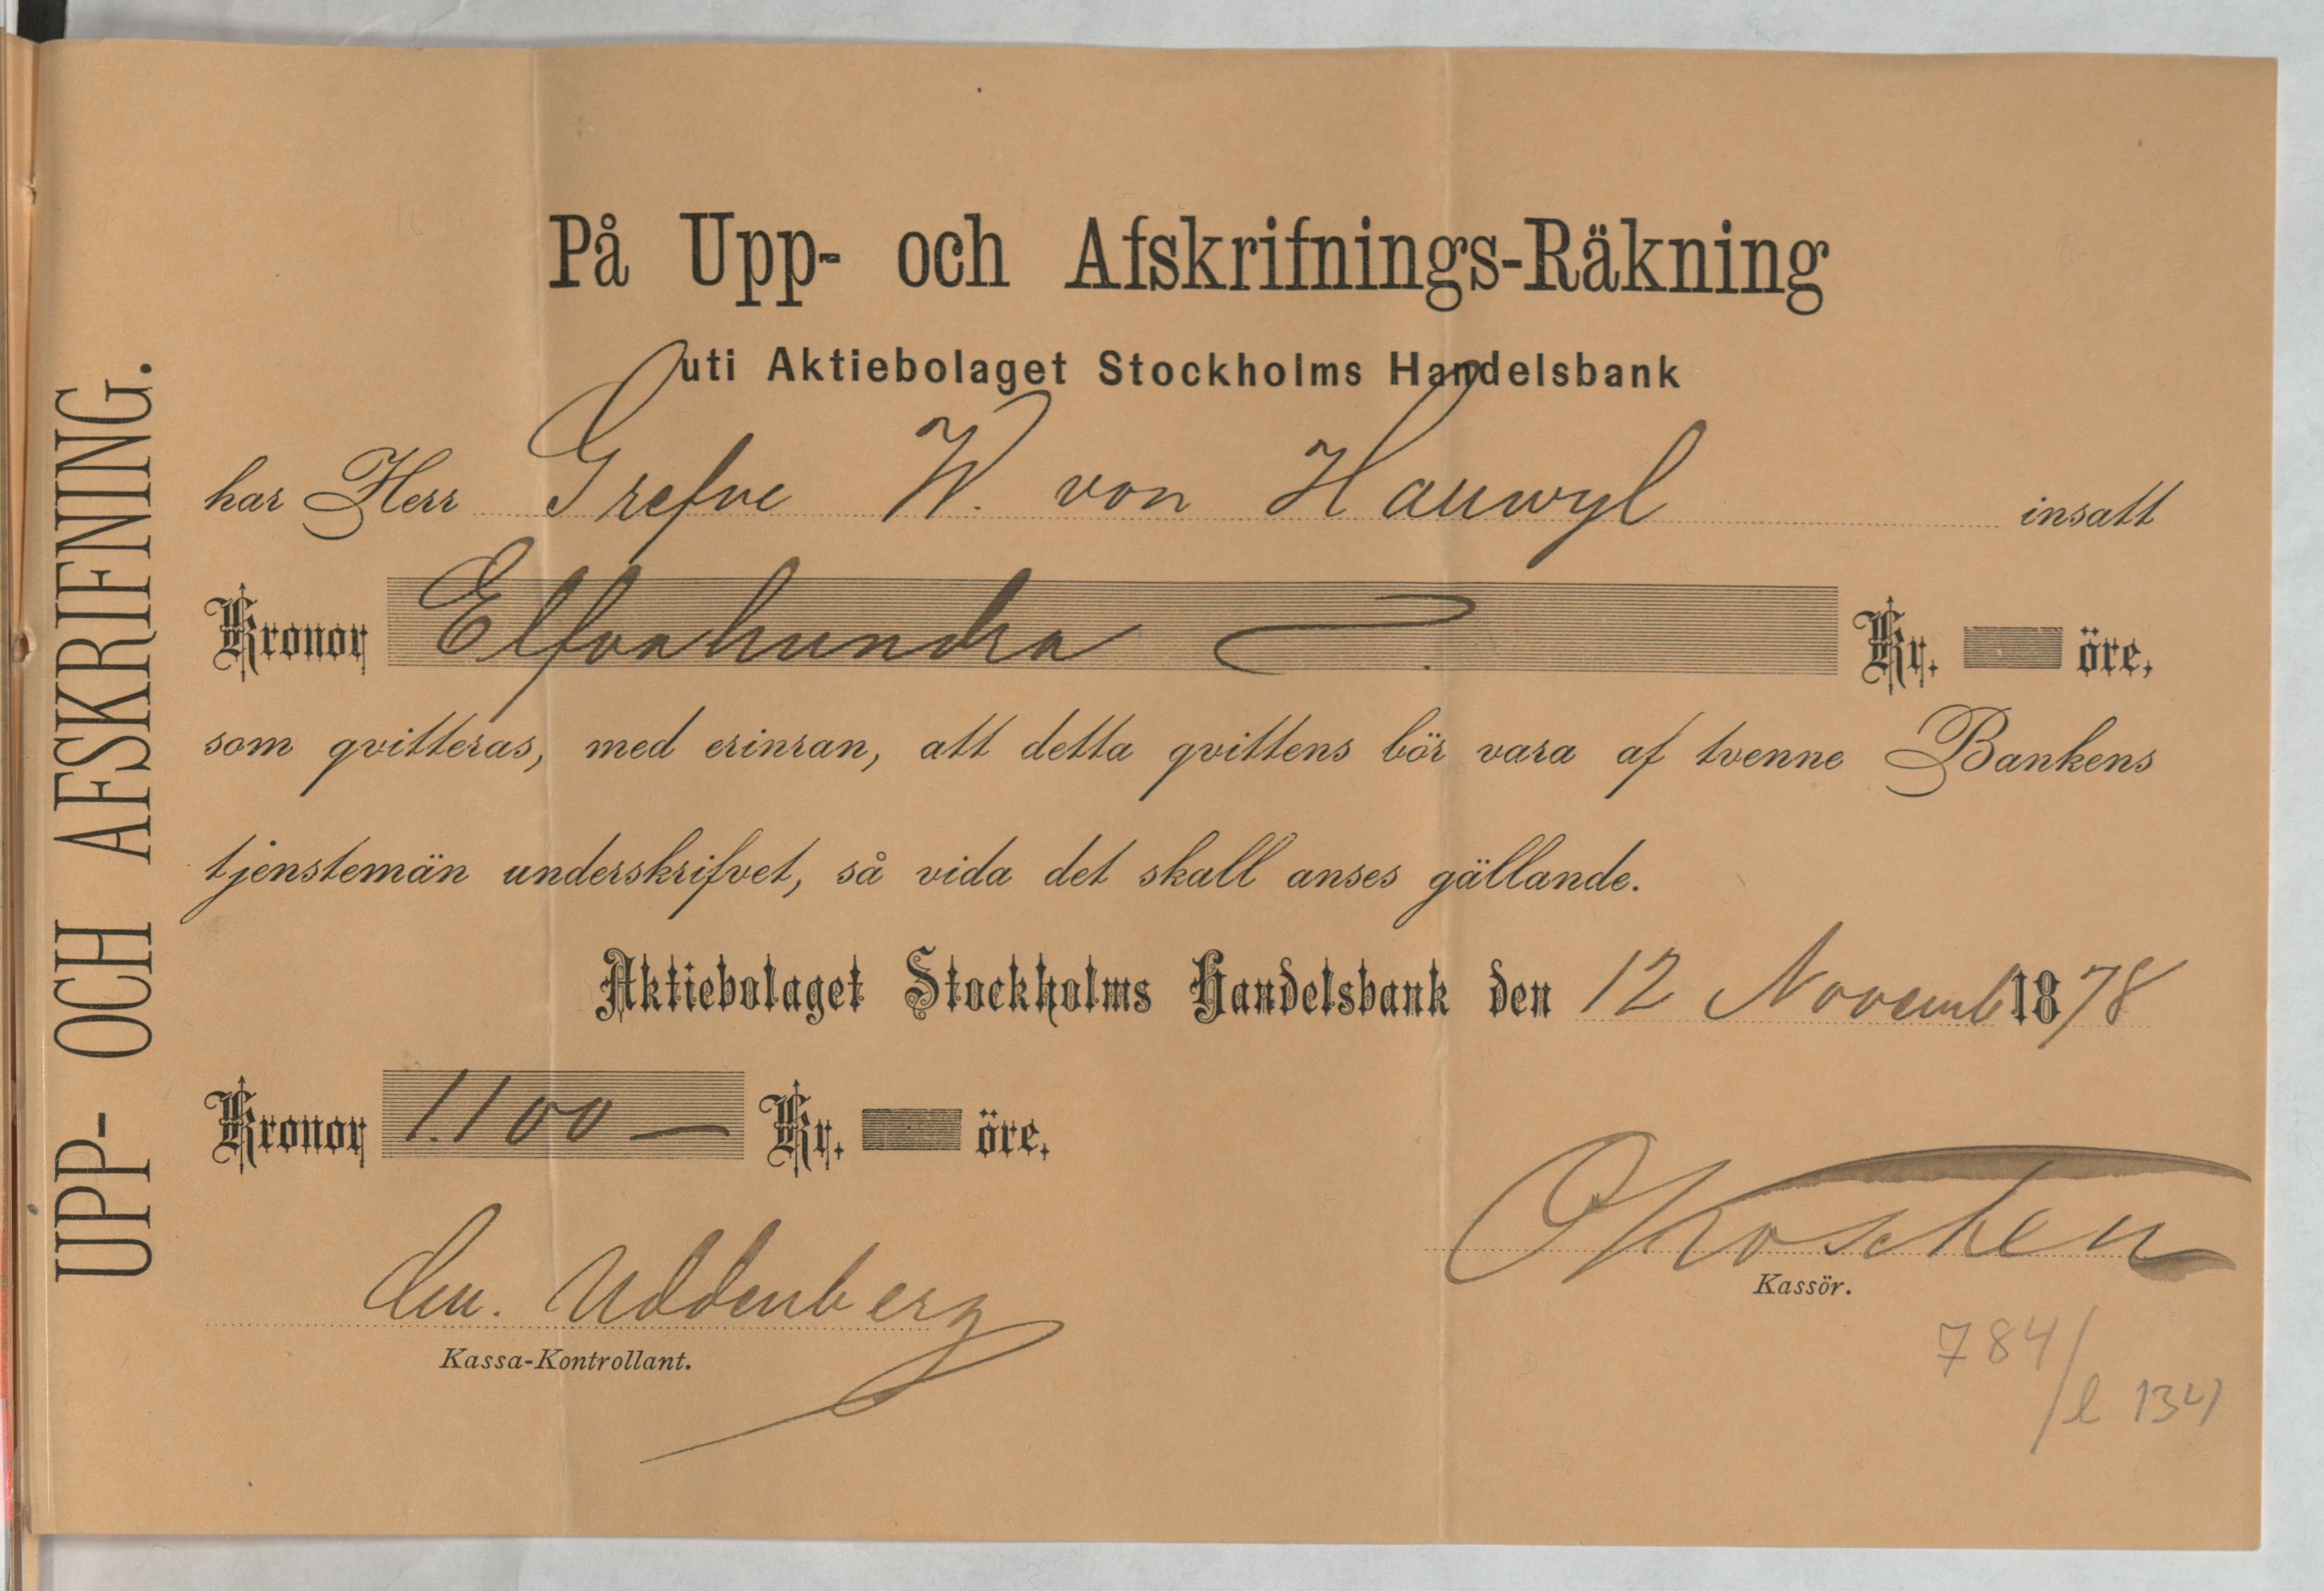 UPP- OCH AFSKRIFNING.
På Upp- och Afskrifnings-Räkning
uti Aktiebolaget Stockholms Handelsbank
har Herr Grefve W. von Hauwyl insatt
Kronor Elfvahundra Kr. öre,
som qvitteras, med erinran, att detta qvittens bör vara af tvenne Bankens
tjenstemän underskrifvet, så vida det skall anses gällande.
Aktiebolaget Stockholms Handelsbank den 12 Novemb 1878
Kronor 1.100 — Kr. öre.
Kassör.
Uddenberg
Kassa-Kontrollant.
784/
l 134